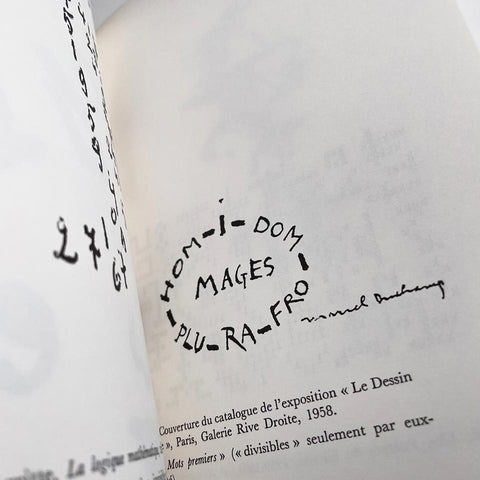 271
67
HOM-i-DOM
MAGES
PLU-RA-FRO
Marcel Duchamp
Couverture du catalogue de l'exposition « Le Dessin
», Paris, Galerie Rive Droite, 1958.
Mots premiers » (« divisibles » seulement par eux-
La logique mathématique